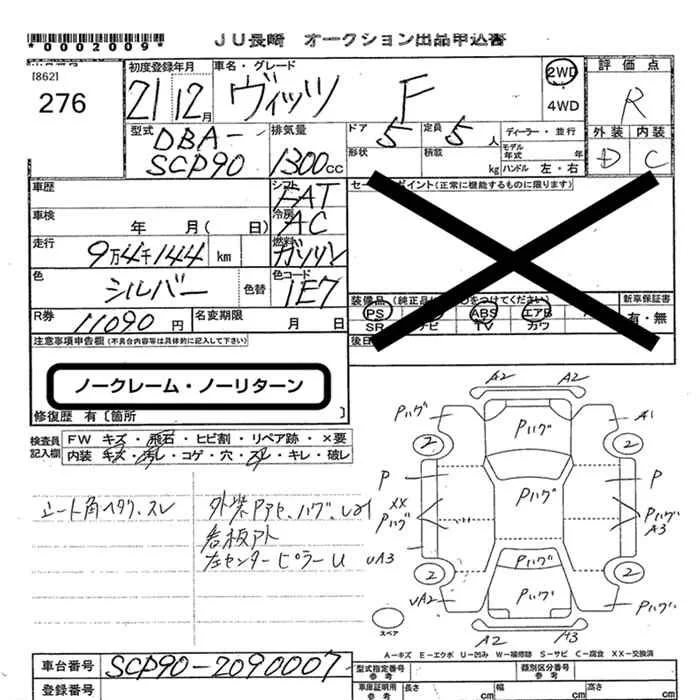 *0002009*
JU長崎 オークション出品申込書
[862]
276
初度登録年月
21 12月
車名・グレード
ヴィッツ F
2WD
4WD
評価点
R
外装 内装
D C
型式
DBA-
SCP90
排気量
1300cc
ドア 5
定員 5人
形状
積載 kg
ディーラー・並行
モデル年式 年
ハンドル 左・右
車歴
シフト FAT
セールスポイント(正常に機能するものに限ります)
車検 年 月( 日)
冷房 AC
走行 9万4千144 km
燃料 ガソリン
色 シルバー 色替
色コード 1E7
装備品 (純正品に○をつけてください)
新車保証書
有・無
PS ABS エアB
SR ナビ TV カワ
R券 11090円
名変期限 月 日
後日
注意事項申告欄(不具合内容等は具体的に記入して下さい)
ノークレーム・ノーリターン
修復歴 有〔箇所 〕
検査員記入欄
FW キズ・飛石・ヒビ割・リペア跡・×要
内装 キズ・汚レ・コゲ・穴・スレ・キレ・破レ
シート角ヘタクスレ
外装Pアセ、ハゲ、
看板アト
左センターピラーU
A2 A2
Pハゲ Pハゲ A1
2 2
P Pハゲ P
XX
Pハゲ Pハゲ
A3
UA3
2 Pハゲ 2
UA2 Pハゲ Pハゲ
スペア
A2 A3
A-キズ E-エクボ U-凹み W-補修跡 S-サビ C-腐食 XX-交換済
車台番号 SCP90-2090007
登録番号
型式指定番号 参考
類別区分番号 参考
車庫証明用 参考
長さ cm
幅 cm
高さ cm